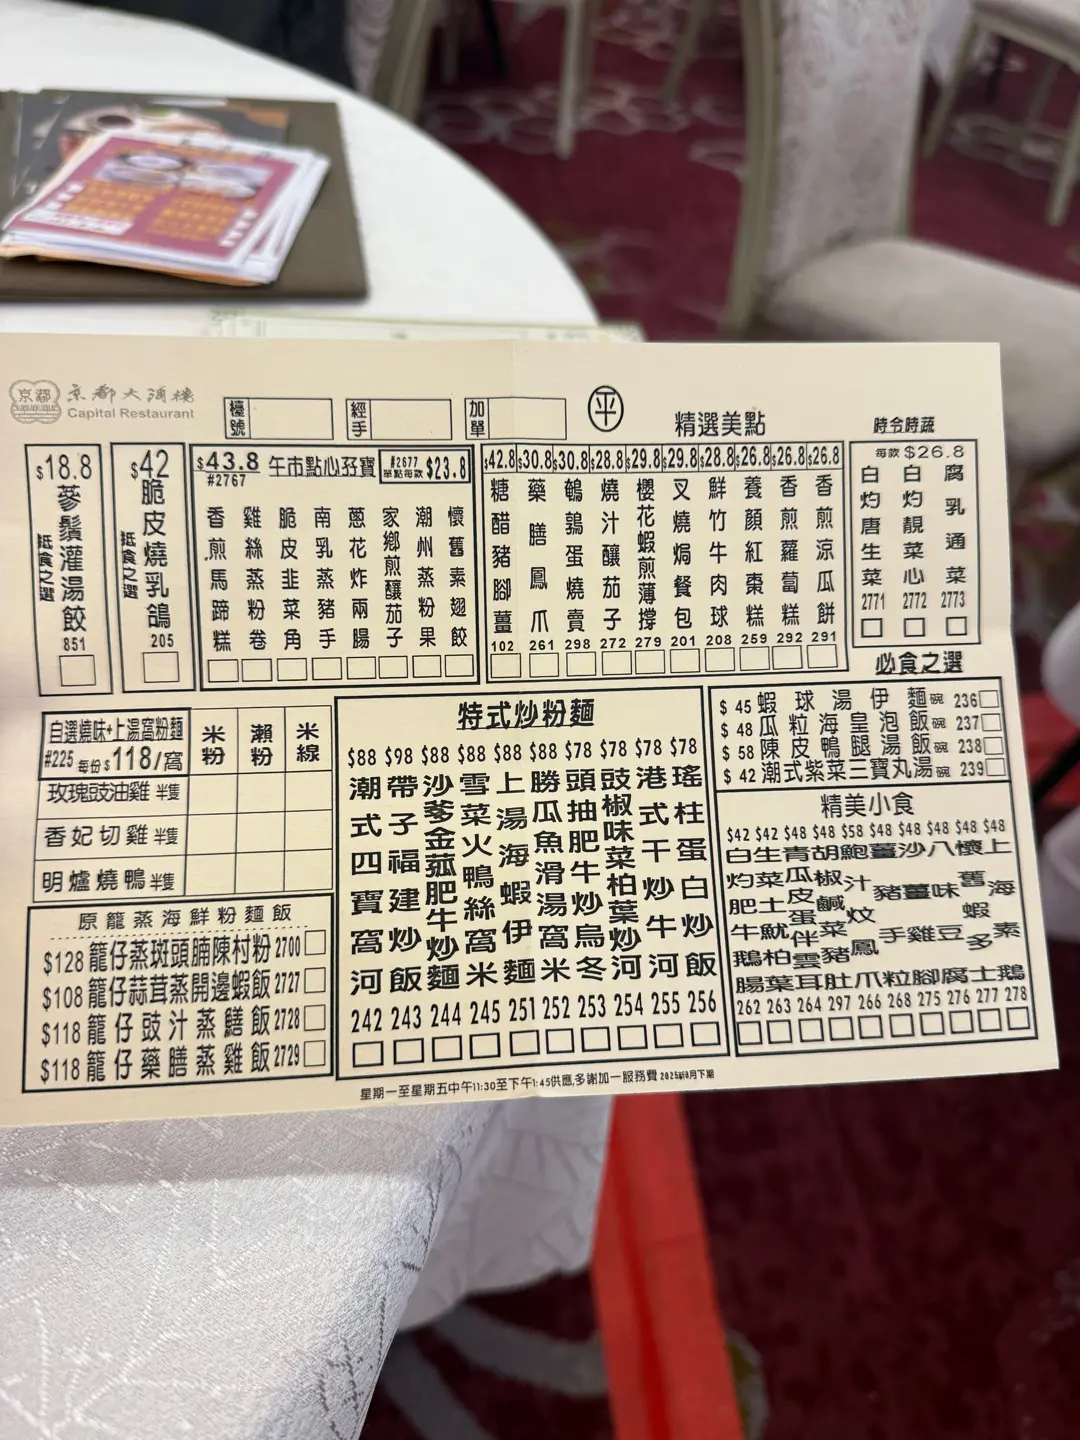 京都
京都大酒樓
Capital Restaurant
檯號
經手
加單
平
精選美點
時令時蔬
$18.8
蔘鬚灌湯餃
抵食之選
851
$42
脆皮燒乳鴿
抵食之選
205
$43.8 午市點心孖寶
#2767
#2677
單點每款 $23.8
香煎馬蹄糕
雞絲蒸粉卷
脆皮韭菜角
南乳蒸豬手
蔥花炸兩腸
家鄉煎釀茄子
潮州蒸粉果
懷舊素翅餃
$42.8 糖醋豬腳薑 102
$30.8 藥膳鳳爪 261
$30.8 鵪鶉蛋燒賣 298
$28.8 燒汁釀茄子 272
$29.8 櫻花蝦煎薄撐 279
$29.8 叉燒焗餐包 201
$28.8 鮮竹牛肉球 208
$26.8 養顏紅棗糕 259
$26.8 香煎蘿蔔糕 292
$26.8 香煎涼瓜餅 291
每款 $26.8
白灼唐生菜 2771
白灼靚菜心 2772
腐乳通菜 2773
自選燒味+上湯窩粉麵
#225 每份 $118/窩
米粉
瀨粉
米線
玫瑰豉油雞 半隻
香妃切雞 半隻
明爐燒鴨 半隻
原籠蒸海鮮粉麵飯
$128 籠仔蒸斑頭腩陳村粉 2700
$108 籠仔蒜茸蒸開邊蝦飯 2727
$118 籠仔豉汁蒸鱔飯 2728
$118 籠仔藥膳蒸雞飯 2729
特式炒粉麵
$88 潮式四寶窩河 242
$98 帶子福建炒飯 243
$88 沙爹金菰肥牛炒麵 244
$88 雪菜火鴨絲窩米 245
$88 上湯海蝦伊麵 251
$88 勝瓜魚滑湯窩米 252
$78 頭抽肥牛炒烏冬 253
$78 豉椒味菜柏葉炒河 254
$78 港式干炒牛河 255
$78 瑤柱蛋白炒飯 256
必食之選
$45 蝦球湯伊麵 碗 236
$48 瓜粒海皇泡飯 碗 237
$58 陳皮鴨腿湯飯 碗 238
$42 潮式紫菜三寶丸湯 碗 239
精美小食
$42 白灼肥牛鵝腸 262
$42 生菜土魷柏葉 263
$48 青瓜皮蛋伴雲耳 264
$48 胡椒鹹菜豬肚 297
$58 鮑汁炆鳳爪 266
$48 薑豬手粒 268
$48 沙薑雞腳 275
$48 八味豆腐 276
$48 懷舊蝦多士 277
$48 上海素鵝 278
星期一至星期五中午11:30至下午1:45供應,多謝加一服務費 2025年8月下期